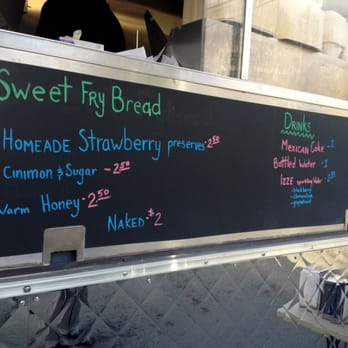 Sweet Fry Bread
HOMEADE Strawberry preserves - 2.50
Cinimon & Sugar - 2.50
Warm Honey - 2.50
NAKED - $2
DRINKS
MEXICAN Coke - 2
Bottled Water - 1
IZZE sparkling Water -
- blackberry
- clementine
- grapefruit